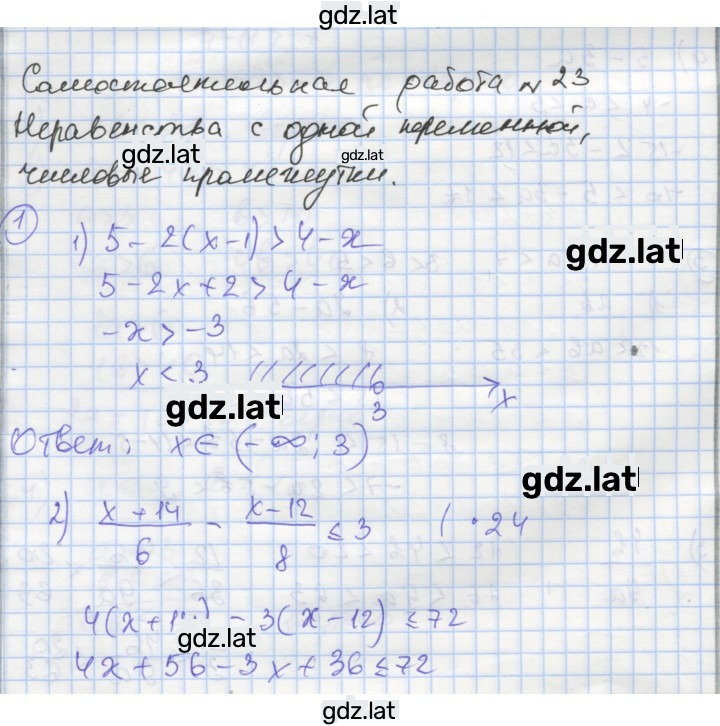 gdz.lat
Самостоятельная работа №23
Неравенства с одной переменной,
gdz.lat
числовые промежутки.
1
1) 5 - 2(x-1) > 4 - x
gdz.lat
5 - 2x + 2 > 4 - x
-x > -3
x < 3
3 x
gdz.lat
Ответ: x ∈ (-∞; 3)
gdz.lat
2) (x+14)/6 - (x-12)/8 ≤ 3 | · 24
4(x+1 ) - 3(x-12) ≤ 72
gdz.lat
4x + 56 - 3x + 36 ≤ 72
gdz.lat